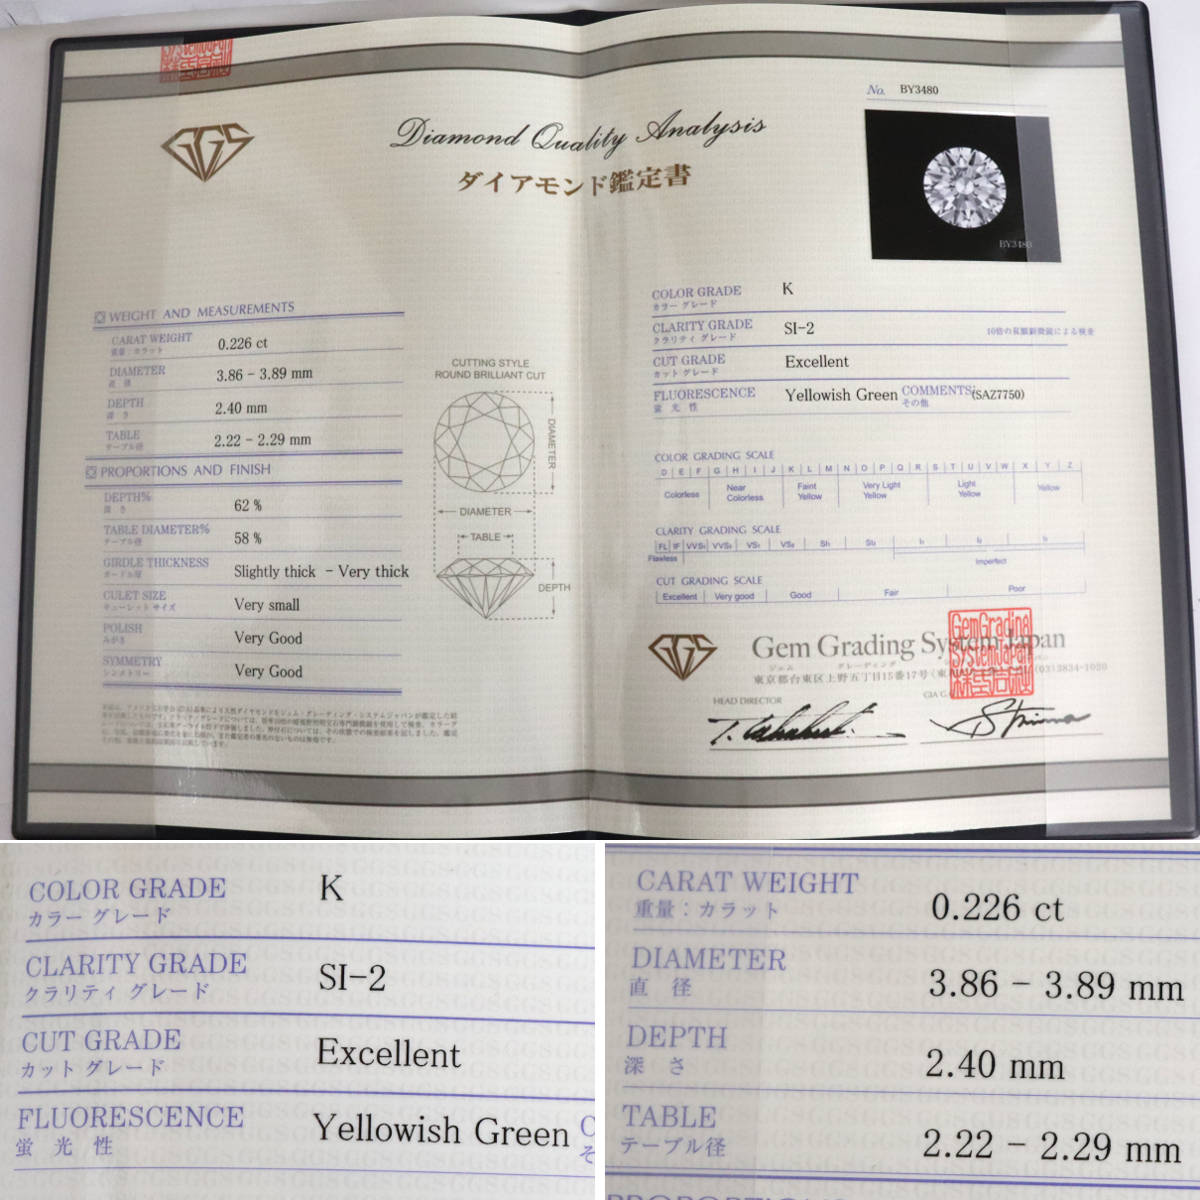 GGS
Diamond Quality Analysis
ダイアモンド鑑定書
No. BY3480
BY3480
WEIGHT AND MEASUREMENTS
CARAT WEIGHT 0.226 ct
重量：カラット
DIAMETER 3.86 - 3.89 mm
直 径
DEPTH 2.40 mm
深 さ
TABLE 2.22 - 2.29 mm
テーブル径
PROPORTIONS AND FINISH
DEPTH% 62 %
深 さ
TABLE DIAMETER% 58 %
テーブル径
GIRDLE THICKNESS Slightly thick - Very thick
ガードル厚
CULET SIZE Very small
キューレット サイズ
POLISH Very Good
みがき
SYMMETRY Very Good
シンメトリー
CUTTING STYLE
ROUND BRILLIANT CUT
DIAMETER
DIAMETER
TABLE
DEPTH
COLOR GRADE K
カラー グレード
CLARITY GRADE SI-2 10倍の双眼顕微鏡による検査
クラリティ グレード
CUT GRADE Excellent
カット グレード
FLUORESCENCE Yellowish Green COMMENTS: (SAZ7750)
蛍 光 性 その他
COLOR GRADING SCALE
D E F G H I J K L M N O P Q R S T U V W X Y Z
Colorless Near Colorless Faint Yellow Very Light Yellow Light Yellow Yellow
CLARITY GRADING SCALE
FL IF VVS1 VVS2 VS1 VS2 SI1 SI2 I1 I2 I3
Flawless Imperfect
CUT GRADING SCALE
Excellent Very good Good Fair Poor
GGS Gem Grading System Japan
ジェム グレーディング
東京都台東区上野五丁目15番17号 (03)3834-1020
Gem Grading
System Japan
株式会社
HEAD DIRECTOR GIA G.G.
COLOR GRADE K
カラー グレード
CLARITY GRADE SI-2
クラリティ グレード
CUT GRADE Excellent
カット グレード
FLUORESCENCE Yellowish Green
蛍 光 性
CARAT WEIGHT 0.226 ct
重量：カラット
DIAMETER 3.86 - 3.89 mm
直 径
DEPTH 2.40 mm
深 さ
TABLE 2.22 - 2.29 mm
テーブル径